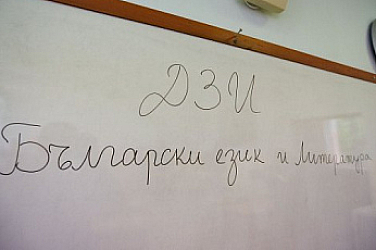 ДЗИ
Български език и Литература